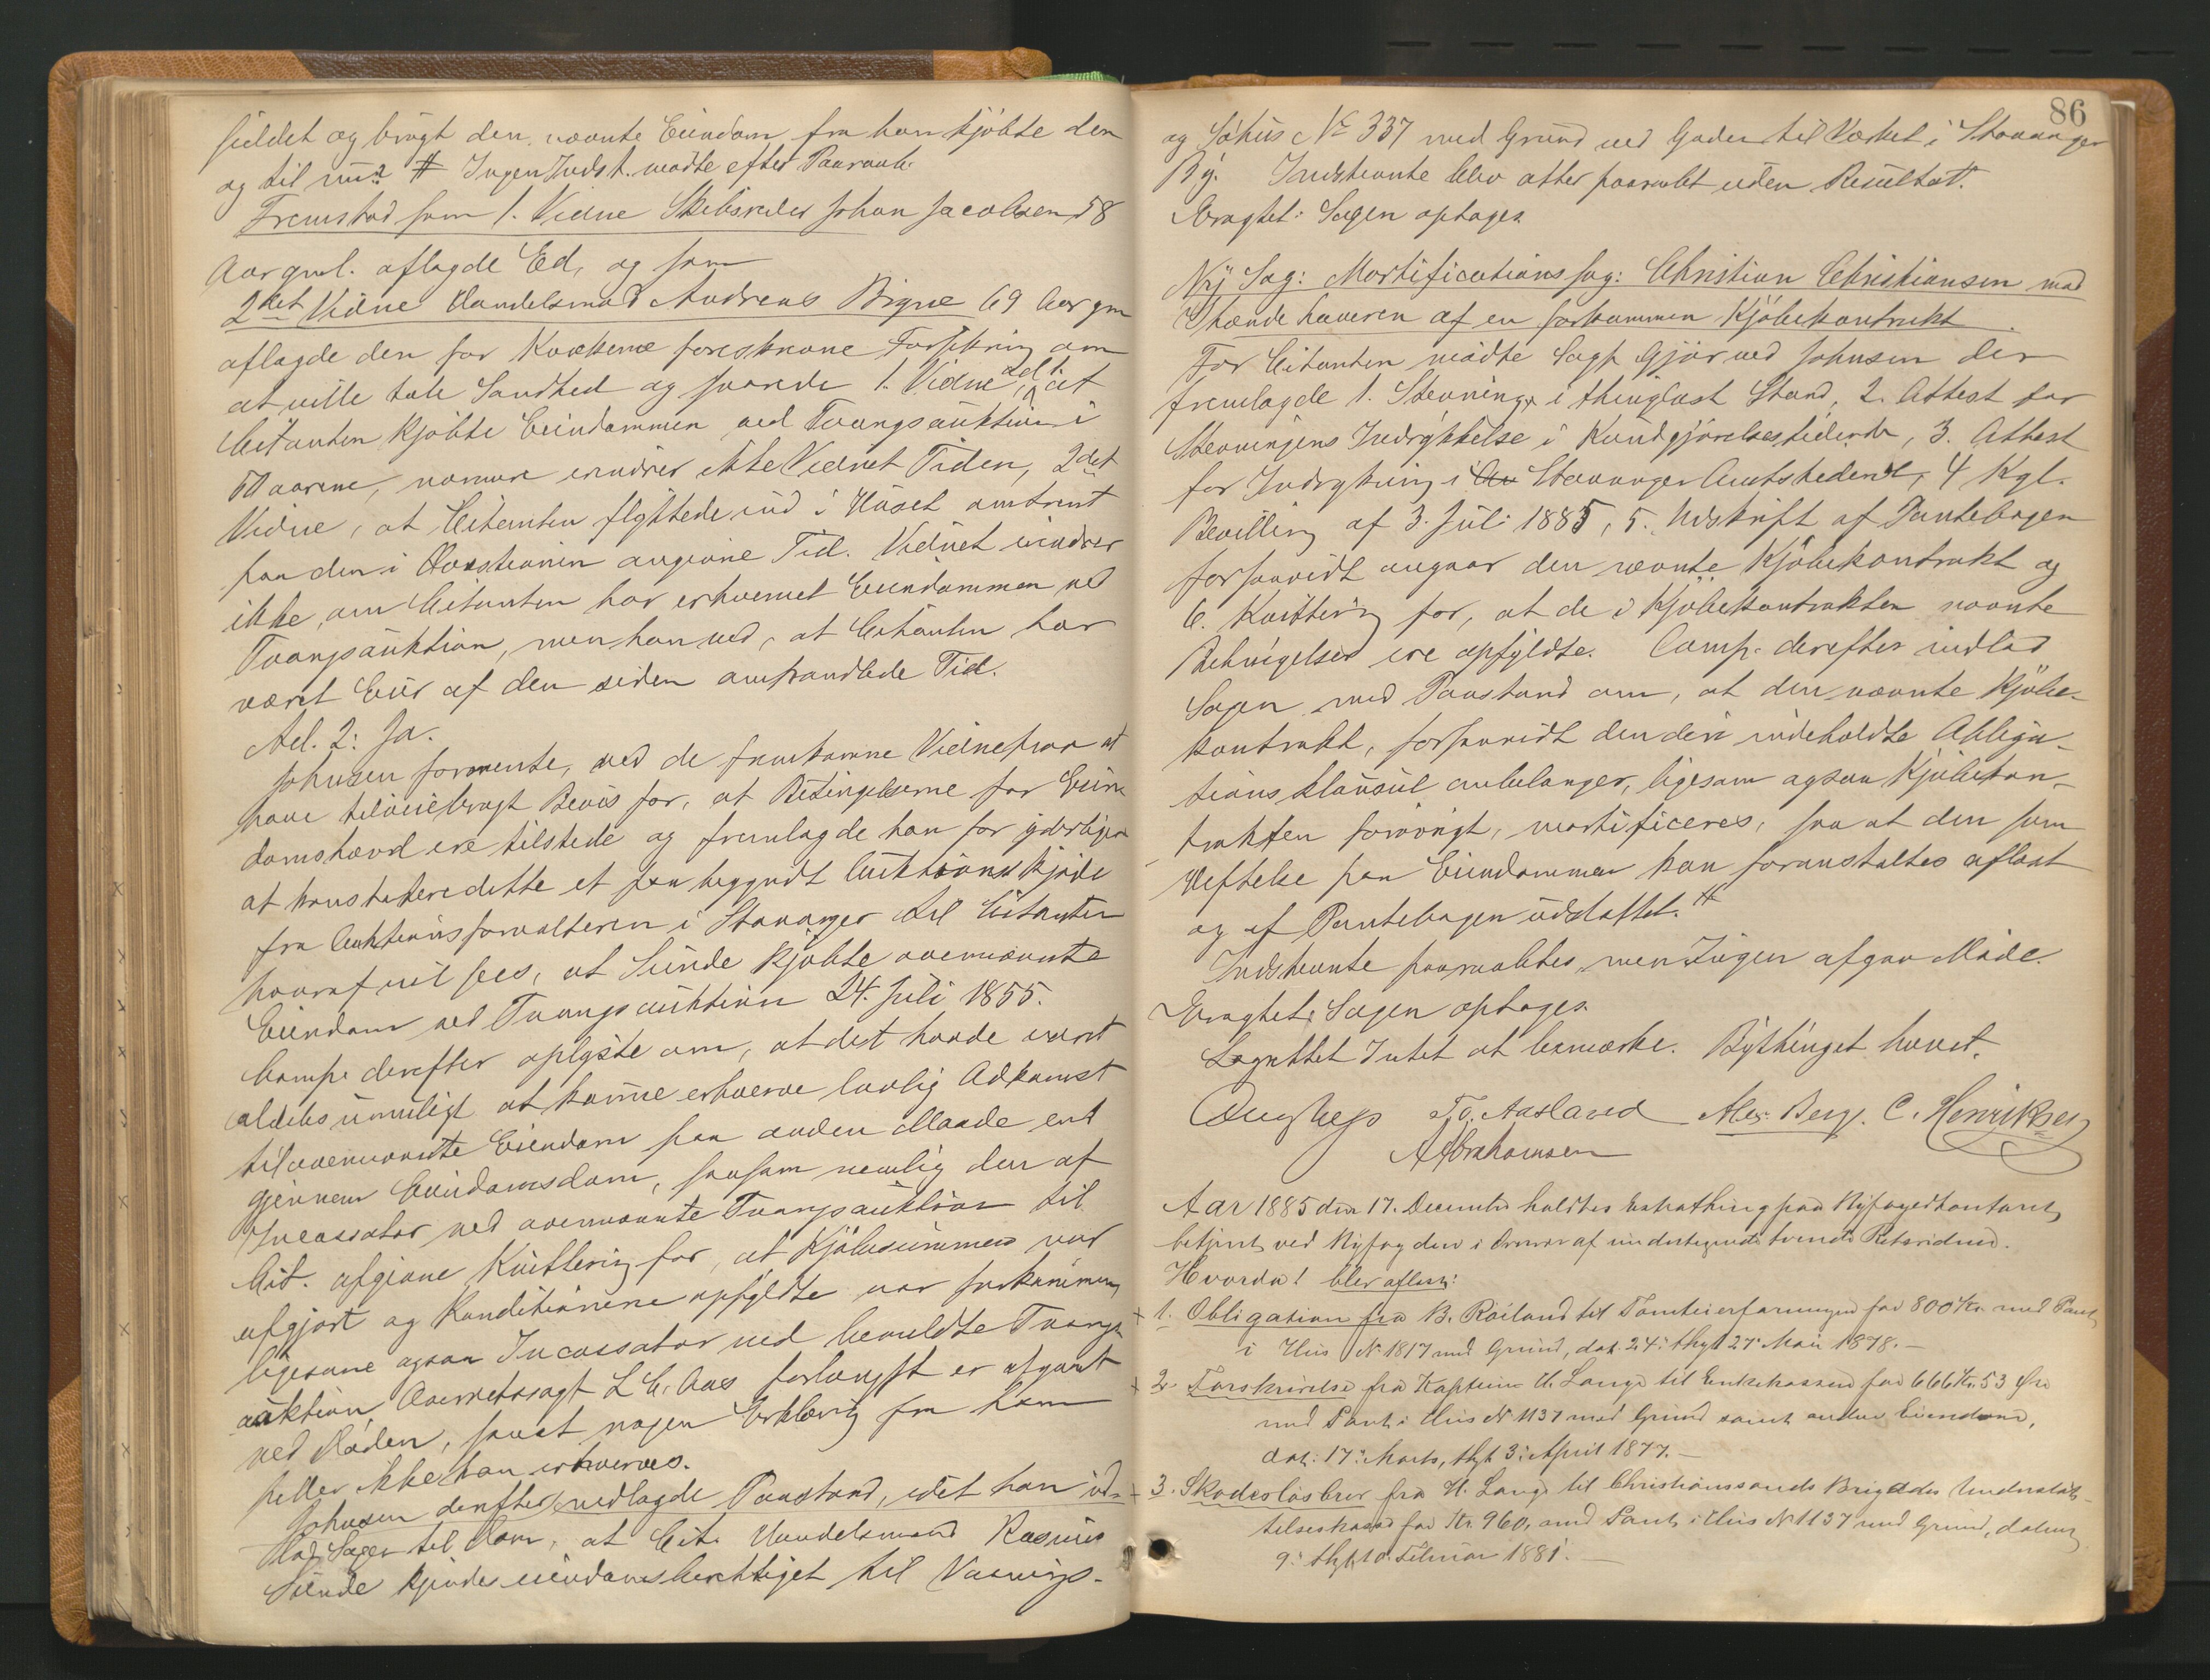 og brugt den nævnte Eiendom fra han kjöbte den
og til nu. # Ingen Indst. mødte efter Paaraab.
Fremstod som 1. Vidne Skibsreder Johan Jacobsen 58
Aar gml. aflagde Ed, og som
2det Vidne Handelsmand Andreas Bigne 69 Aar gm
aflagde den for Kvækerne foreskrevne Forsikring om
at ville tale Sandhed og svarede 1. Vidne ad 1. at
Citanten kjöbte Eiendommen ved Tvangsauktion i
50 aarene, naar erindrer ikke Vidnet Tiden, 2det
Vidne, at Citanten flyttede ind i Huset omtrent
paa den i Qvæstionen angivne Tid. Vidnet erindrer
ikke, om Citanten har erhvervet Eiendommen ved
Tvangsauktion, men han ved, at Citanten har
været Eier af den siden omhandlede Tid.
Ad. 2: Ja.
Johnsen formente, ved de fremkomne Vidneprov at
have tilveiebragt Bevis for, at Betingelserne for Eien
domshævd ere tilstede og fremlagde han for yderligere
at konstatere dette et paabegyndt Auktionsskjöde
fra Auktionsforvalteren i Stavanger til Citanten
hvoraf vil sees, at Sunde kjöbte ovennævnte
Eiendom ved Tvangsauktion 24. Juli 1855.
Comp. derefter oplyste om, at det havde været
aldeles umuligt at kunne erhverve lovlig Adkomst
til ovennævnte Eiendom paa anden Maade end
gjennem Eiendomsdom, saasom nemlig den af
Incassator ved ovennævnte Tvangsauktion til
Cit. afgivne Kvittering for, at Kjöbesummen var
afgjort og Konditionerne opfyldte var forkommen,
ligesom ogsaa Incassator ved bemeldte Tvangs
auktion, Overretssagf. L C. Aas forlængst er afgaaet
ved Döden, saaat nogen Erklæring fra ham
heller ikke kan erhverves.
Johnsen derefter nedlagde Paastand, idet han ind-
lod Sagen til Dom, at Cit. Handelsmand Rasmus
Sunde kjendes eiendomsberettiget til Vaanings-
86
og Söhus No 337 med Grund ved Gaden til Værket i Stavanger
By. Indstevnte blev atter paaraabt uden Resultat.
Eragtet: Sagen optages.
Ny Sag: Mortificationssag: Christian Christiansen mod
Ihændehaveren af en forkommen Kjöbekontrakt.
For Citanten mödte Sagf. Gjör ved Johnsen der
fremlagde 1. Stevning i thinglæst Stand, 2. Attest for
Stevningens Indrykkelse i Kundgjørelsestidende, 3. Attest
for Indrykning i Stavanger Amtstidende, 4 Kgl.
Bevilling af 3. Juli 1885, 5. Udskrift af Pantebogen
forsaavidt angaar den nævnte Kjöbekontrakt og
6. Kvittering for, at de i Kjöbekontrakten nævnte
Betingelser ere opfyldte. Comp. derefter indlod
Sagen med Paastand om, at den nævnte Kjöbe-
kontrakt, forsaavidt den deri indeholdte Obliga-
tions Klausul anbelanger, ligesom ogsaa Kjöbekon-
trakten forövrigt, mortificeres, saa at den som
Heftelse paa Eiendommen kan foranstaltes aflæst
og af Pantebogen udslettet. #
Indstevnte paaraabtes, men Ingen afgav Möde.
Eragtet: Sagen optages.
Lagrettet Intet at bemærke. Bythinget hævet.
To. Aasland Alex. Berg. C. Henriksen
A Abrahamsen
Aar 1885 den 17. December holdtes Extrathing paa Byfogedkontoret,
betjent ved Byfogden i Overvær af undertegnede tvende Retsvidner.
Hvorda! blev aflæst:
1. Obligation fra B. Roiland til Tomteierforeningen for 800 Kr. med Pant
i Hus No 1817 med Grund, dat. 24: thgl 27: Mai 1878. —
2. Forskrivelse fra Kaptein H. Lange til Enkekassen for 666 Kr. 53 Öre
med Pant i Hus No 1137 med Grund samt anden Eiendom,
dat: 17: Marts, thgl. 3: April 1877. —
3. Skadeslösbrev fra H. Lange til Christianssands Brigades Understöt-
telseskasse for Kr. 960, med Pant i Hus No 1137 med Grund, dateret
9: thgl. 10. Februar 1881. —